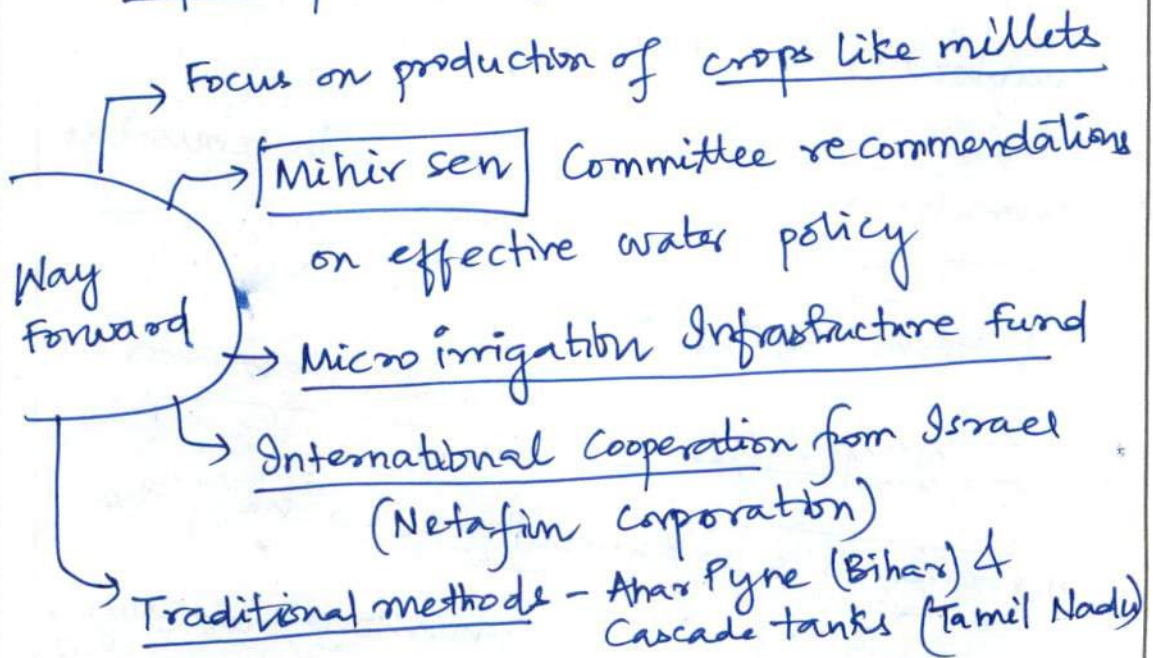 Focus on production of crops like millets
Mihir sen Committee recommendations
on effective water policy
Way
Forward
Micro irrigation Infrastructure fund
International Cooperation from Israel
(Netafim Corporation)
Traditional methods - Ahar Pyne (Bihar) &
Cascade tanks (Tamil Nadu)